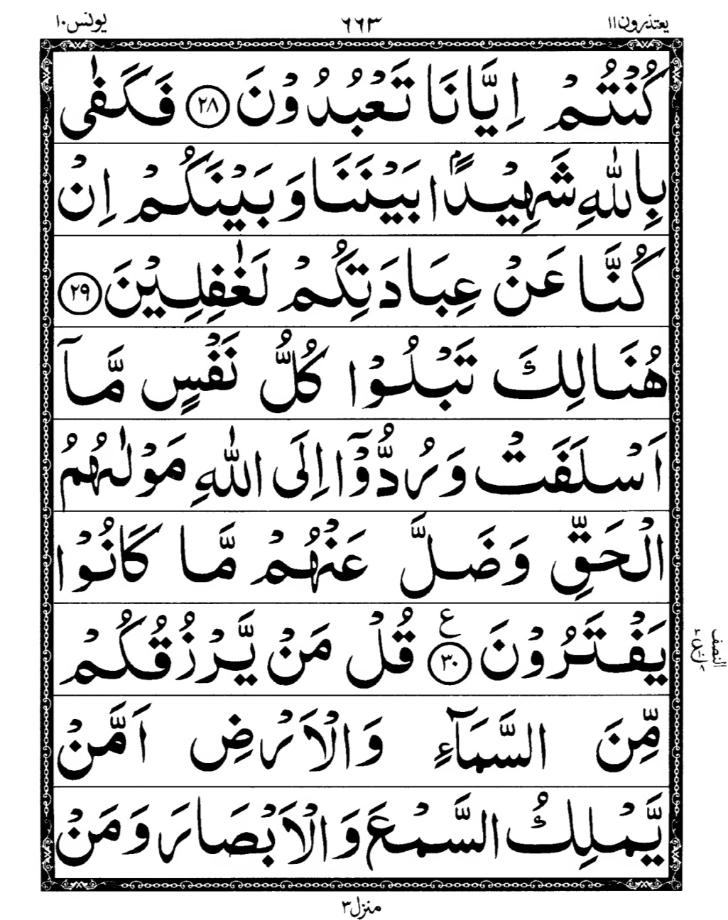 یعتذرون ۱۱ ۶۶۳ یونس ۱۰
كُنْتُمْ اِیَّانَا تَعْبُدُوْنَ ﴿۲۸﴾ فَكَفٰى
بِاللّٰهِ شَهِیْدًۢا بَیْنَنَا وَ بَیْنَكُمْ اِنْ
كُنَّا عَنْ عِبَادَتِكُمْ لَغٰفِلِیْنَ ﴿۲۹﴾
هُنَالِكَ تَبْلُوْا كُلُّ نَفْسٍ مَّاۤ
اَسْلَفَتْ وَ رُدُّوْۤا اِلَى اللّٰهِ مَوْلٰىهُمُ
الْحَقِّ وَ ضَلَّ عَنْهُمْ مَّا كَانُوْا
یَفْتَرُوْنَ ﴿۳۰﴾ ع قُلْ مَنْ یَّرْزُقُكُمْ
النصف
مِّنَ السَّمَآءِ وَ الْاَرْضِ اَمَّنْ
یَّمْلِكُ السَّمْعَ وَ الْاَبْصَارَ وَ مَنْ
منزل ۳